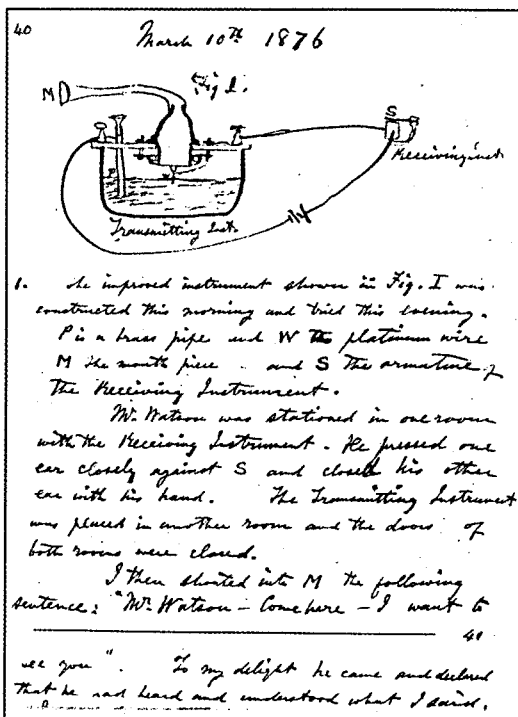 40
March 10th 1876
Fig I.
M
S
Receiving Inst.
P
W
Transmitting Inst.
1. The improved instrument shown in Fig. I was
constructed this morning and tried this evening.
P is a brass pipe and W the platinum wire
M the mouth piece and S the armature of
the Receiving Instrument.
Mr. Watson was stationed in one room
with the Receiving Instrument. He pressed one
ear closely against S and closed his other
ear with his hand. The Transmitting Instrument
was placed in another room and the doors of
both rooms were closed.
I then shouted into M the following
sentence: "Mr. Watson – Come here – I want to
41
see you". To my delight he came and declared
that he had heard and understood what I said.